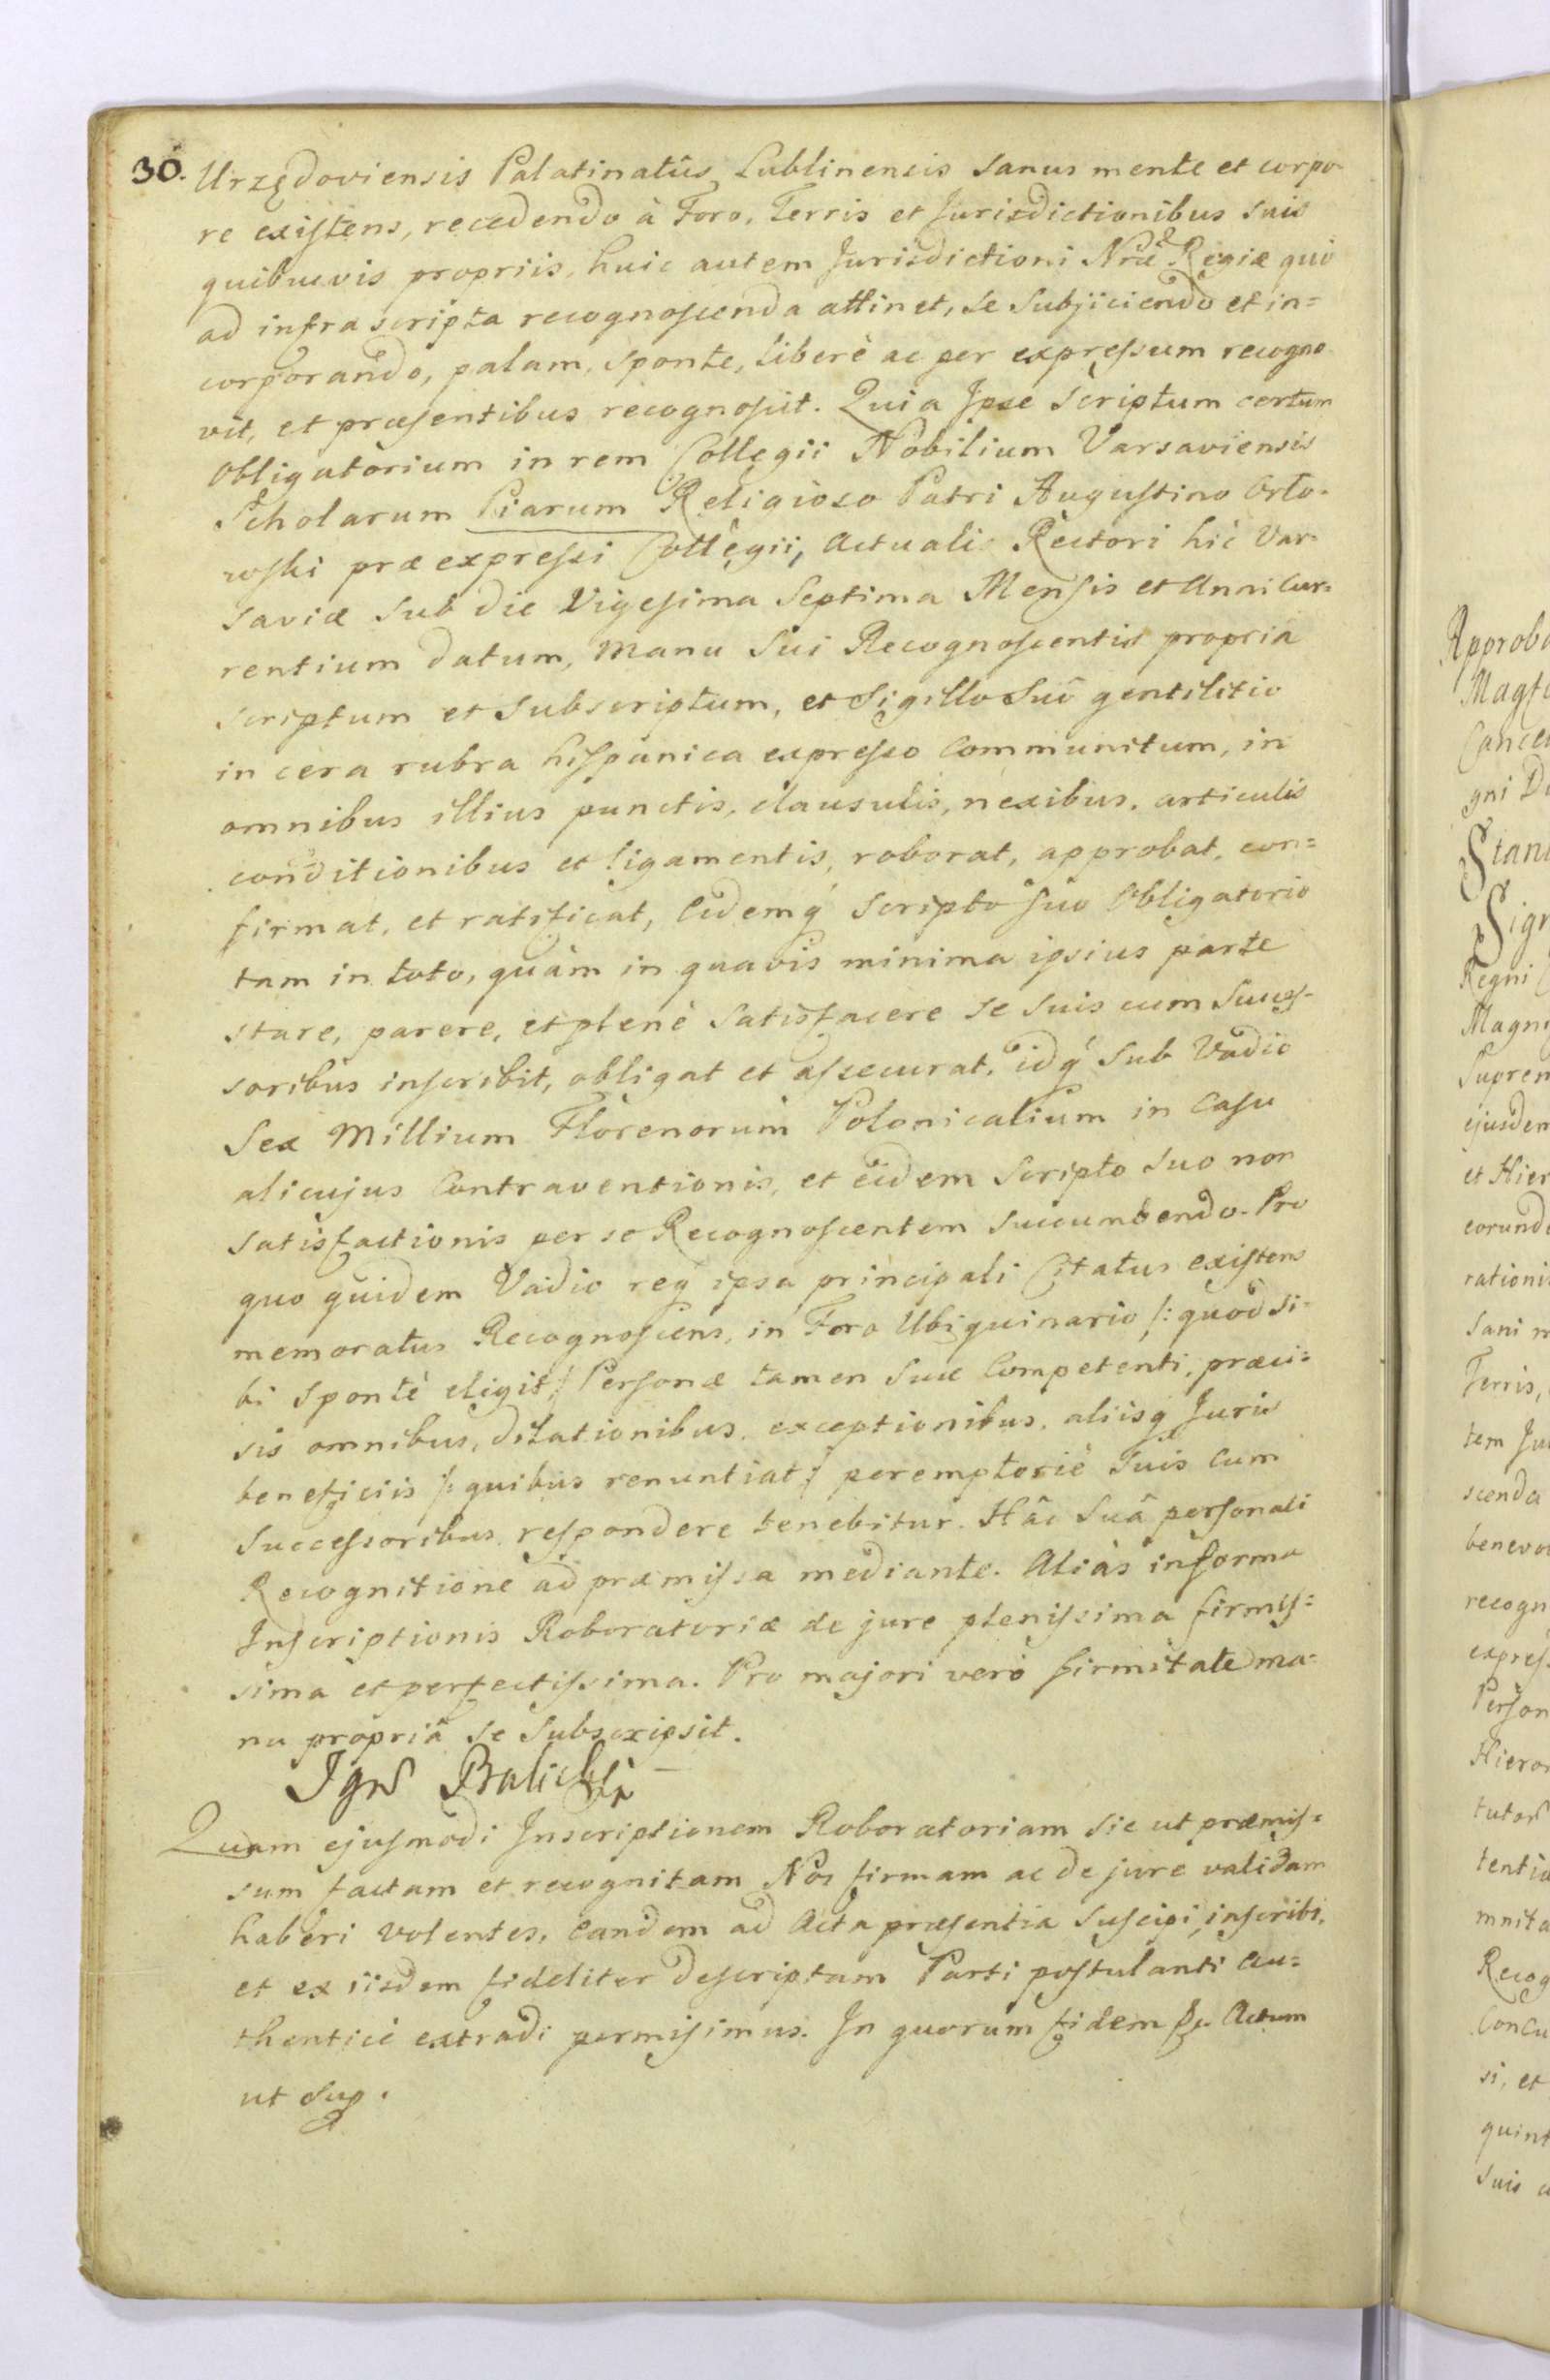 30. Urzędoviensis Palatinatûs Lublinensis sanus mente et corpo-
re existens, recedendo à Foro, Terris et Jurisdictionibus suis
quibusvis propriis, huic autem Jurisdictioni Nrae Regiæ quò
ad infrascripta recognoscenda attinet, se subjiciendo et in=
corporando, palam, sponte, liberè ac per expressum recogno-
vit, et præsentibus recognoscit. Quia Ipse Scriptum certum
Obligatorium in rem Collegii Nobilium Varsaviensis
Scholarum Piarum Religioso Patri Augustino Orło-
wski præexpressi Collegii, Actuali Rectori hic Var-
saviæ sub die Vigesima Septima Mensis et Anni Cur-
rentium datum, Manu Sui Recognoscentis propria
scriptum et subscriptum, et Sigillo Suô gentilitio
in cera rubra hispanica expresso Communitum, in
omnibus illius punctis, clausulis, nexibus, articulis
conditionibus et ligamentis, roborat, approbat, con=
firmat, et ratificat, Eidemq́ Scripto Suo Obligatorio
tam in toto, quàm in quavis minima ipsius parte
stare, parere, et plenè Satisfacere se suis cum Succes-
soribus inscribit, obligat et assecurat, idq́ Sub Vadio
Sex Millium Florenorum Polonicalium in Casu
alicujus Contraventionis, et eidem Scripto suo non
satisfactionis per se Recognoscentem succumbendo. Pro
quo quidem Vadio req́ ipsa principali Citatus existens
memoratus Recognoscens, in Foro Ubiquinario /: quod si-
bi sponte eligit :/ Personæ tamen suæ Competenti, præci=
sis omnibus, dilationibus, exceptionibus, aliisq́ Juris
beneficiis /: quibus renuntiat :/ peremptorie suis cum
Successoribus respondere tenebitur. Hâc Suâ personali
Recognitione ad præmissa mediante. Aliàs in forma
Inscriptionis Roboratoriæ de jure plenissima firmis=
sima et perfectissima. Pro majori verò firmitate ma=
nu propriâ se Subscripsit.
Ign
Quam ejusmodi Inscriptionem Roboratoriam sic ut præmis=
sum factam et recognitam Nos firmam ac de jure validam
haberi volentes, eandem ad Acta præsentia suscipi, inscribi,
et ex iisdem fideliter descriptam Parti postulanti au=
thenticè extradi permisimus. In quorum fidem &c. Actum
ut sup.
Magn
Regni
Magn
Suprem
ejusdem
et Hier
rationis
sani m
Terris,
tem Ju
scenda
benevo
recogn
express
Person
Recog
si, et
quint
suis